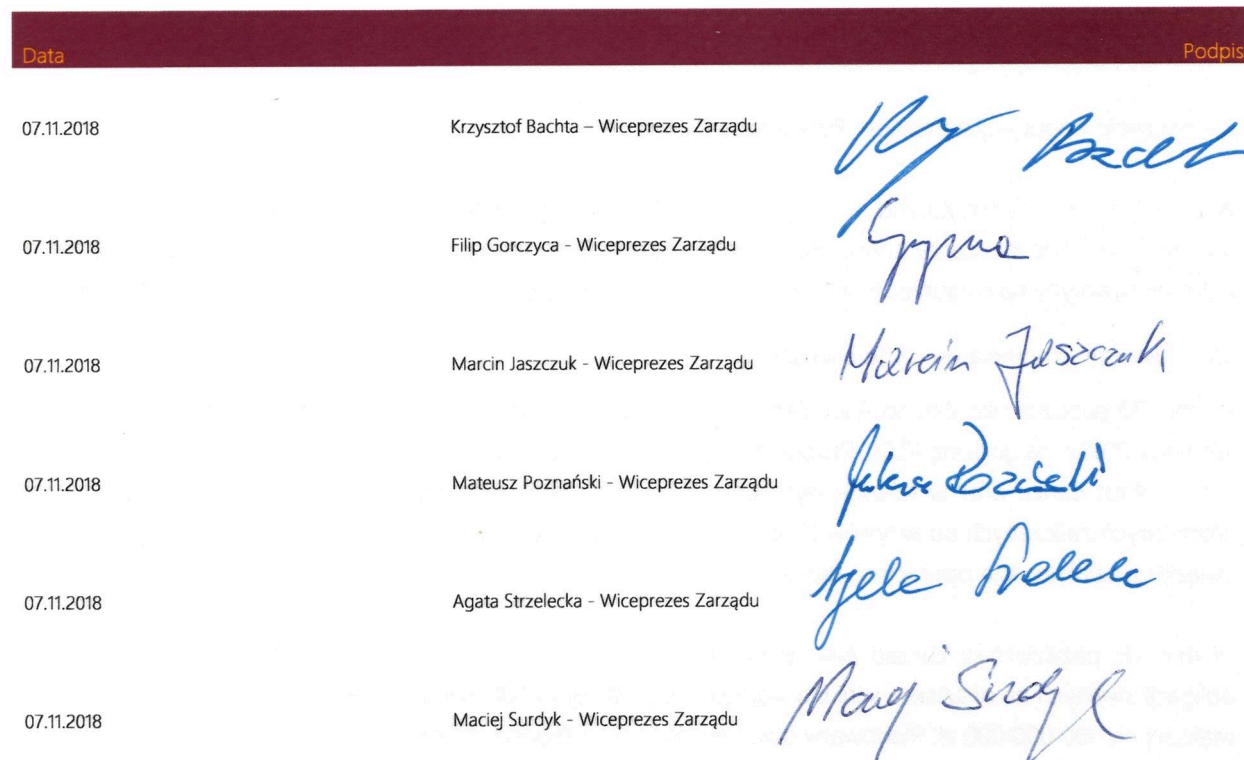 Data Podpis
07.11.2018 Krzysztof Bachta – Wiceprezes Zarządu
07.11.2018 Filip Gorczyca - Wiceprezes Zarządu
07.11.2018 Marcin Jaszczuk - Wiceprezes Zarządu Marcin Jaszczuk
07.11.2018 Mateusz Poznański - Wiceprezes Zarządu
07.11.2018 Agata Strzelecka - Wiceprezes Zarządu
07.11.2018 Maciej Surdyk - Wiceprezes Zarządu Maciej Surdyk